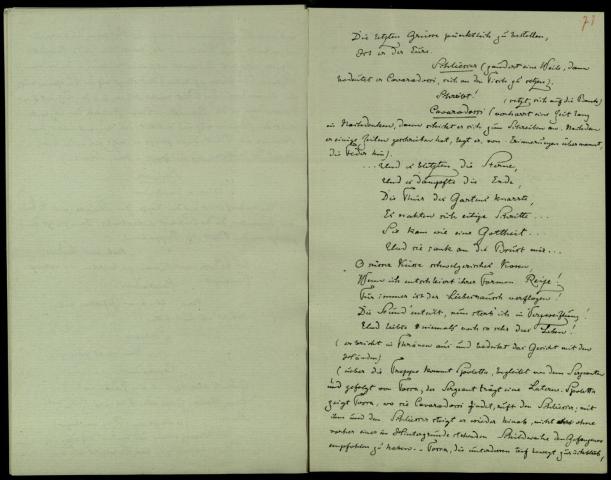 71
Die letzten Grüsse pünktlich zu bestellen,
Ist er der Eure.
Schliesser (zaudert eine Weile, dann
bedeutet er Cavaradossi, sich an den Tisch zu setzen).
Schreibt! (setzt sich auf die Bank)
Cavaradossi (verharrt eine Zeit lang
in Nachdenken, dann schickt er sich zum Schreiben an. Nachdem
er einige Zeilen geschrieben hat, legt er, von Erinnerungen übermannt,
die Feder hin).
...Und es blitzten die Sterne,
Und es dampfte die Erde,
Die Thür des Gartens knarrte,
Es nahten sich eilige Schritte...
Sie kam wie eine Gottheit...
Und sie sank an die Brust mir...
O süsse Küsse schwelgerisches Kosen,
Wenn ich entschleiert ihrer Formen Reize!
Für immer ist der Liebesrausch verflogen!
Die Stund' enteilt, nun sterb' ich in Verzweiflung!
Und liebte niemals noch so sehr das Leben!
(er bricht in Thränen aus und bedeckt das Gesicht mit den
Händen)
(über die Treppe kommt Spoletta, begleitet von dem Sergeanten
und gefolgt von Tosca; der Sergeant trägt eine Laterne. Spoletta
zeigt Tosca, wo sie Cavaradossi findet, ruft den Schliesser; mit
ihm und dem Schliesser steigt er wieder hinab, nicht ohne
vorher einer im Hintergrunde stehenden Schildwache den Gefangenen
empfohlen zu haben. - Tosca, die